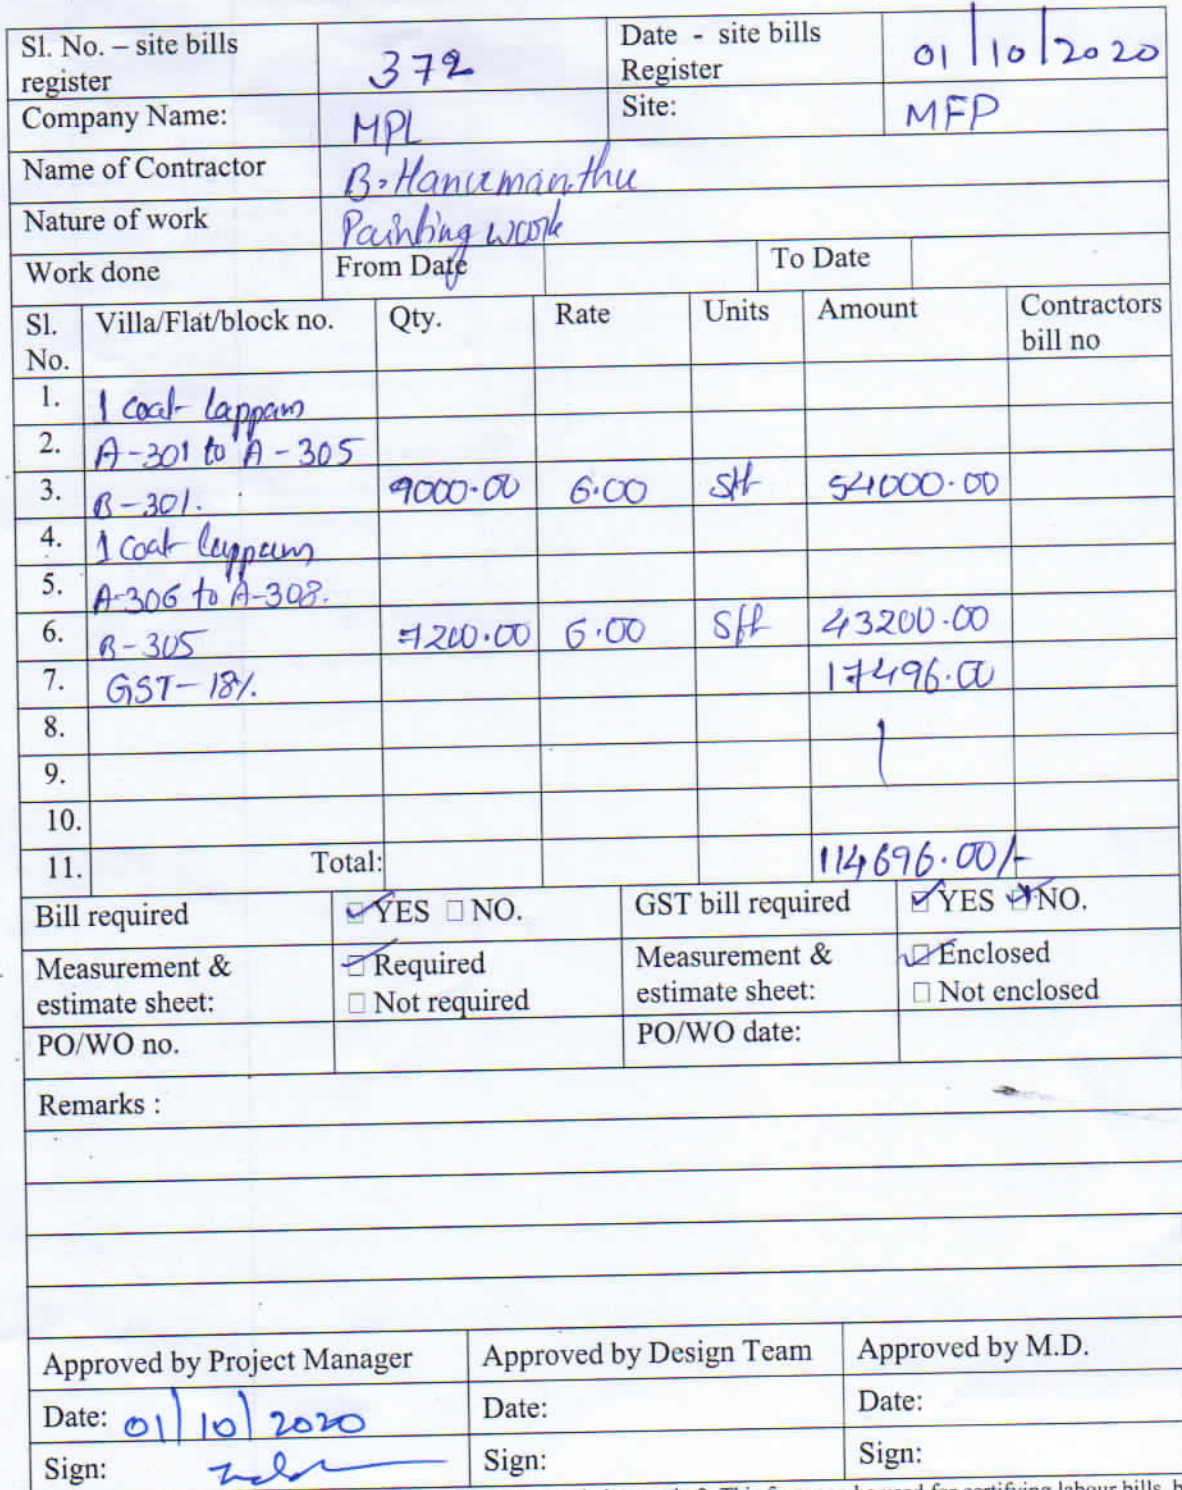 Sl. No. – site bills register 372 Date - site bills Register 01/10/2020
Company Name: MPL Site: MFP
Name of Contractor B. Hanumanthu
Nature of work Painting work
Work done From Date To Date
Sl. No. Villa/Flat/block no. Qty. Rate Units Amount Contractors bill no
1. 1 coat lappam
2. A-301 to A-305
3. B-301. 9000.00 6.00 Sft 54000.00
4. 1 coat lappam
5. A-306 to A-308.
6. B-305 7200.00 6.00 Sft 43200.00
7. GST-18% 17496.00
8.
9.
10.
11. Total: 114696.00/-
Bill required YES NO. GST bill required YES NO.
Measurement & estimate sheet: Required Not required Measurement & estimate sheet: Enclosed Not enclosed
PO/WO no. PO/WO date:
Remarks :
Approved by Project Manager Approved by Design Team Approved by M.D.
Date: 01/10/2020 Date: Date:
Sign: Sign: Sign: